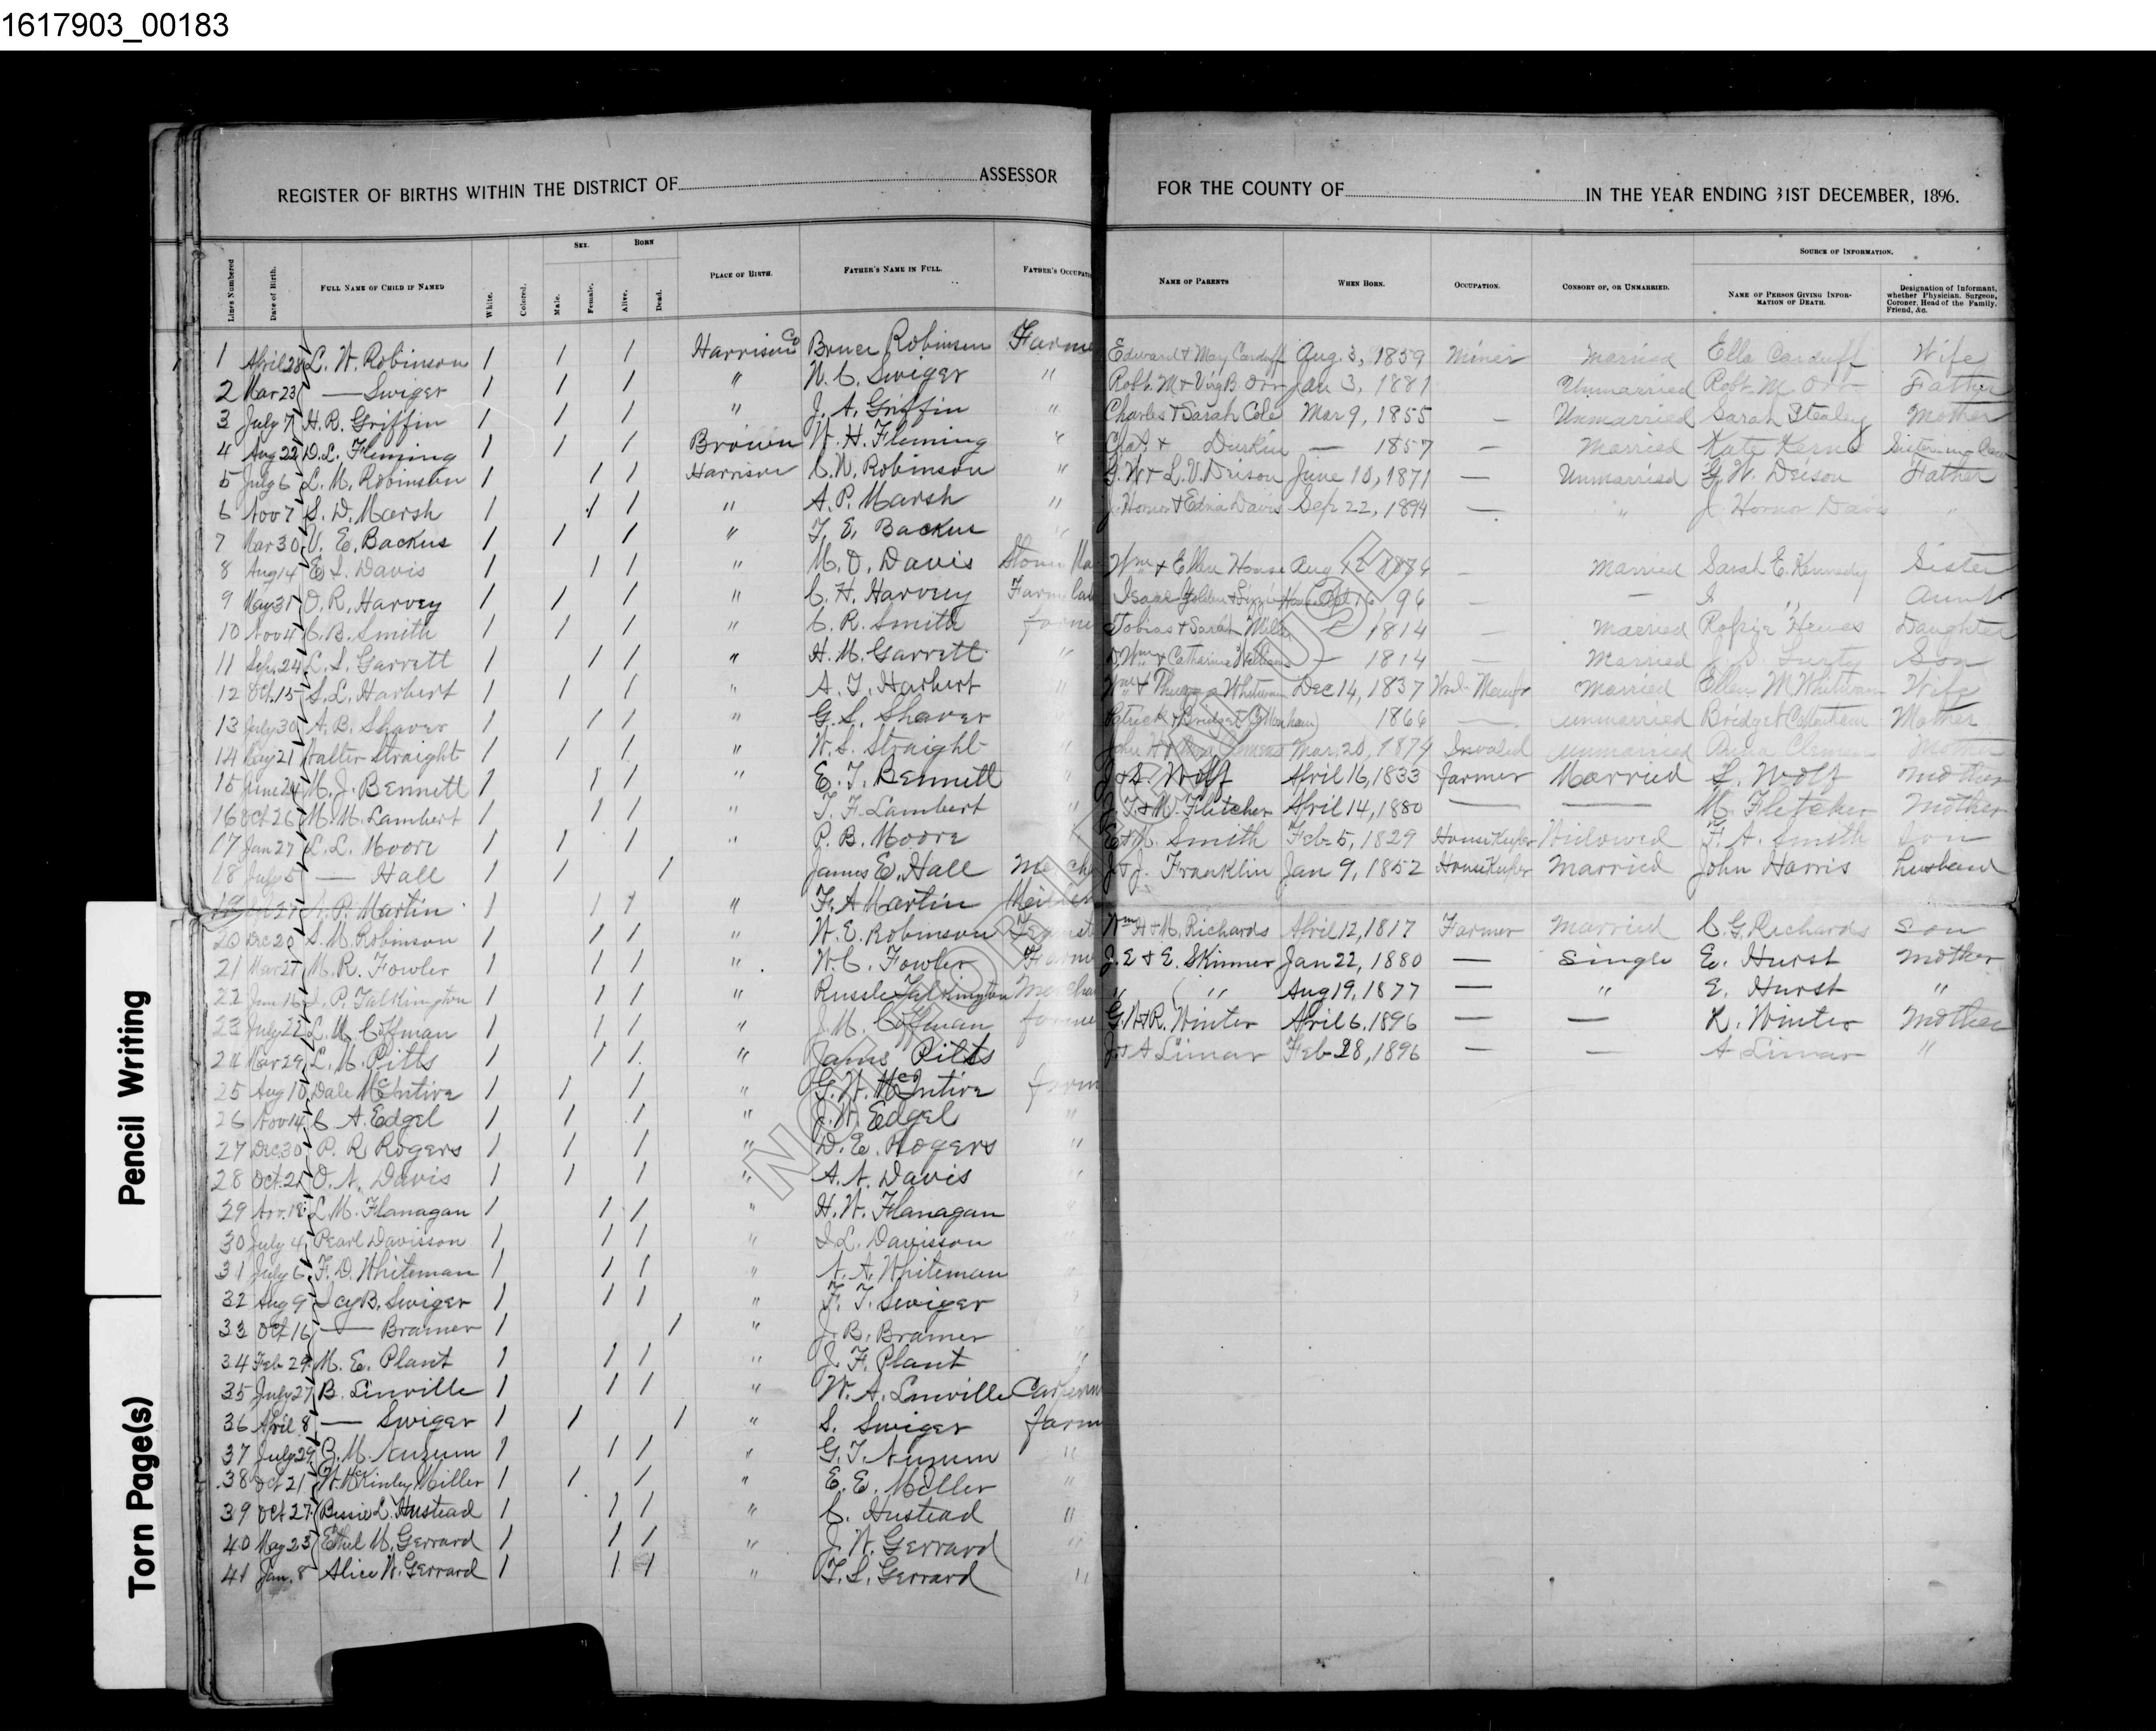 1617903_00183
REGISTER OF BIRTHS WITHIN THE DISTRICT OF ASSESSOR
Lines Numbered Date of Birth. FULL NAME OF CHILD IF NAMED White. Colored. SEX. Male. Female. BORN Alive. Dead. PLACE OF BIRTH. FATHER'S NAME IN FULL. FATHER'S OCCUPATI
1 April 28 L. W. Robinson 1 1 1 Harrison Co Bruce Robinson Farme
2 Mar 23 — Swiger 1 1 1 " W. C. Swiger "
3 July 7 H. R. Griffin 1 1 1 " J. A. Griffin "
4 Aug 22 D. L. Fleming 1 1 1 Brown W. H. Fleming "
5 July 6 L. M. Robinson 1 1 1 Harrison C. W. Robinson "
6 Nov 7 S. D. Marsh 1 1 1 " A. P. Marsh "
7 Mar 30 V. E. Backus 1 1 1 " T. E. Backus "
8 Aug 14 E. I. Davis 1 1 1 " M. D. Davis Stone Ma
9 May 31 O. R. Harvey 1 1 1 " C. H. Harvey
10 Nov 4 C. B. Smith 1 1 1 " C. R. Smith farme
11 Sep. 24 L. S. Garrett 1 1 1 " H. M. Garrett "
12 Oct. 15 S. L. Harbert 1 1 1 " A. J. Harbert "
13 July 30 A. B. Shaver 1 1 1 " G. S. Shaver "
14 21 Walter Straight 1 1 1 " W. S. Straight "
15 June 24 M. J. Bennett 1 1 1 " E. T. Bennett "
16 Oct 26 M. M. Lambert 1 1 1 " T. F. Lambert "
17 Jan 27 L. L. Moore 1 1 1 " P. B. Moore
18 July 5 — Hall 1 1 1 James E. Hall Mercha
19 27 P. Martin 1 1 1 " F. A Martin
20 Dec 20 S. M. Robinson 1 1 1 " W. E. Robinson
21 Mar 27 M. R. Fowler 1 1 1 " W. C. Fowler Farme
22 Jan 16 P. Talkington 1 1 1 " Russle Talkington Mercha
23 July 22 L. M. Coffman 1 1 1 " J. M. Coffman farme
24 Mar 29 L. M. Pitts 1 1 1 " James Pitts
25 Aug 10 Dale McIntire 1 1 1 " G. W. McIntire farm
26 Nov 14 C. A. Edgel 1 1 1 " J. W. Edgel "
27 Dec. 30 P. R. Rogers 1 1 1 " D. E. Rogers "
28 Oct. 21 O. N. Davis 1 1 1 " A. N. Davis "
29 Nov. 18 L. M. Flanagan 1 1 1 " H. W. Flanagan "
30 July 4 Pearl Davisson 1 1 1 " I. L. Davisson "
31 July 6 F. D. Whiteman 1 1 1 " N. A. Whiteman "
32 Aug 9 Icy B. Swiger 1 1 1 " F. T. Swiger "
33 Oct 16 — Bramer 1 1 " J. B. Bramer "
34 Feb 29 M. E. Plant 1 1 1 " J. F. Plant "
35 July 27 B. Linville 1 1 1 " W. A. Linville Carpen
36 April 8 — Swiger 1 1 1 " S. Swiger farm
37 July 29 G. M. Nuzum 1 1 1 " G. T. Nuzum "
38 Oct 21 W. McKinley Miller 1 1 1 " E. E. Miller "
39 Oct 27 Bessie L. Hustead 1 1 1 " C. Hustead "
40 May 23 Ethel M. Gerrard 1 1 1 " J. W. Gerrard "
41 Jan. 8 Alice W. Gerrard 1 1 1 " T. S. Gerrard "
FOR THE COUNTY OF IN THE YEAR ENDING 31ST DECEMBER, 1896.
NAME OF PARENTS WHEN BORN. OCCUPATION. CONSORT OF, OR UNMARRIED. SOURCE OF INFORMATION. NAME OF PERSON GIVING INFORMATION OF DEATH. Designation of Informant, whether Physician, Surgeon, Coroner, Head of the Family, Friend, &c.
Edward & Mary Carduff Aug. 3, 1859 Miner Married Ella Carduff Wife
Robt. M & Virg B. Orr Jan 3, 1881 Unmarried Robt. M. Orr Father
Charles & Sarah Cole Mar 9, 1855 — Unmarried Sarah Stealey Mother
Chas & Durkin — 1857 — Married Kate Kerns Sister-in-law
G. W & L. V. Deison June 10, 1871 — Unmarried G. W. Deison Father
J. Hornor & Edna Davis Sep 22, 1894 — " J. Hornor Davis "
Wm & Ellen House Aug 12 1874 — Married Sarah E. Kennedy Sister
Isaac Golden & 16, 96 — — Aunt
Tobias & Sarah Miller — 1814 — Married Hewes Daughter
Wm & Catharine Williams — 1814 — Married Son
Wm & Whitman Dec 14, 1837 Married Ellen M Whitman Wife
Patrick & Bridget Callanham 1866 — unmarried Bridget Callanham Mother
John H & Clemens Mar. 20, 1874 Invalid unmarried Anna Clemens Mother
J & S. Wolf April 16, 1833 farmer Married S. Wolf Mother
J. T. & M. Fletcher April 14, 1880 — — M. Fletcher Mother
E & N. Smith Feb 5, 1829 HouseKeeper Widowed F. A. Smith Son
J & J. Franklin Jan 9, 1852 HouseKeeper Married John Harris husband
Wm H & M. Richards April 12, 1817 Farmer Married C. G. Richards Son
J. E & E. Skinner Jan 22, 1880 — Single E. Hurst Mother
" " Aug 19, 1877 — " E. Hurst "
G. W & R. Winter April 6, 1896 — — R. Winter Mother
J & A Limar Feb 28, 1896 — — A Limar "
Pencil Writing
Torn Page(s)